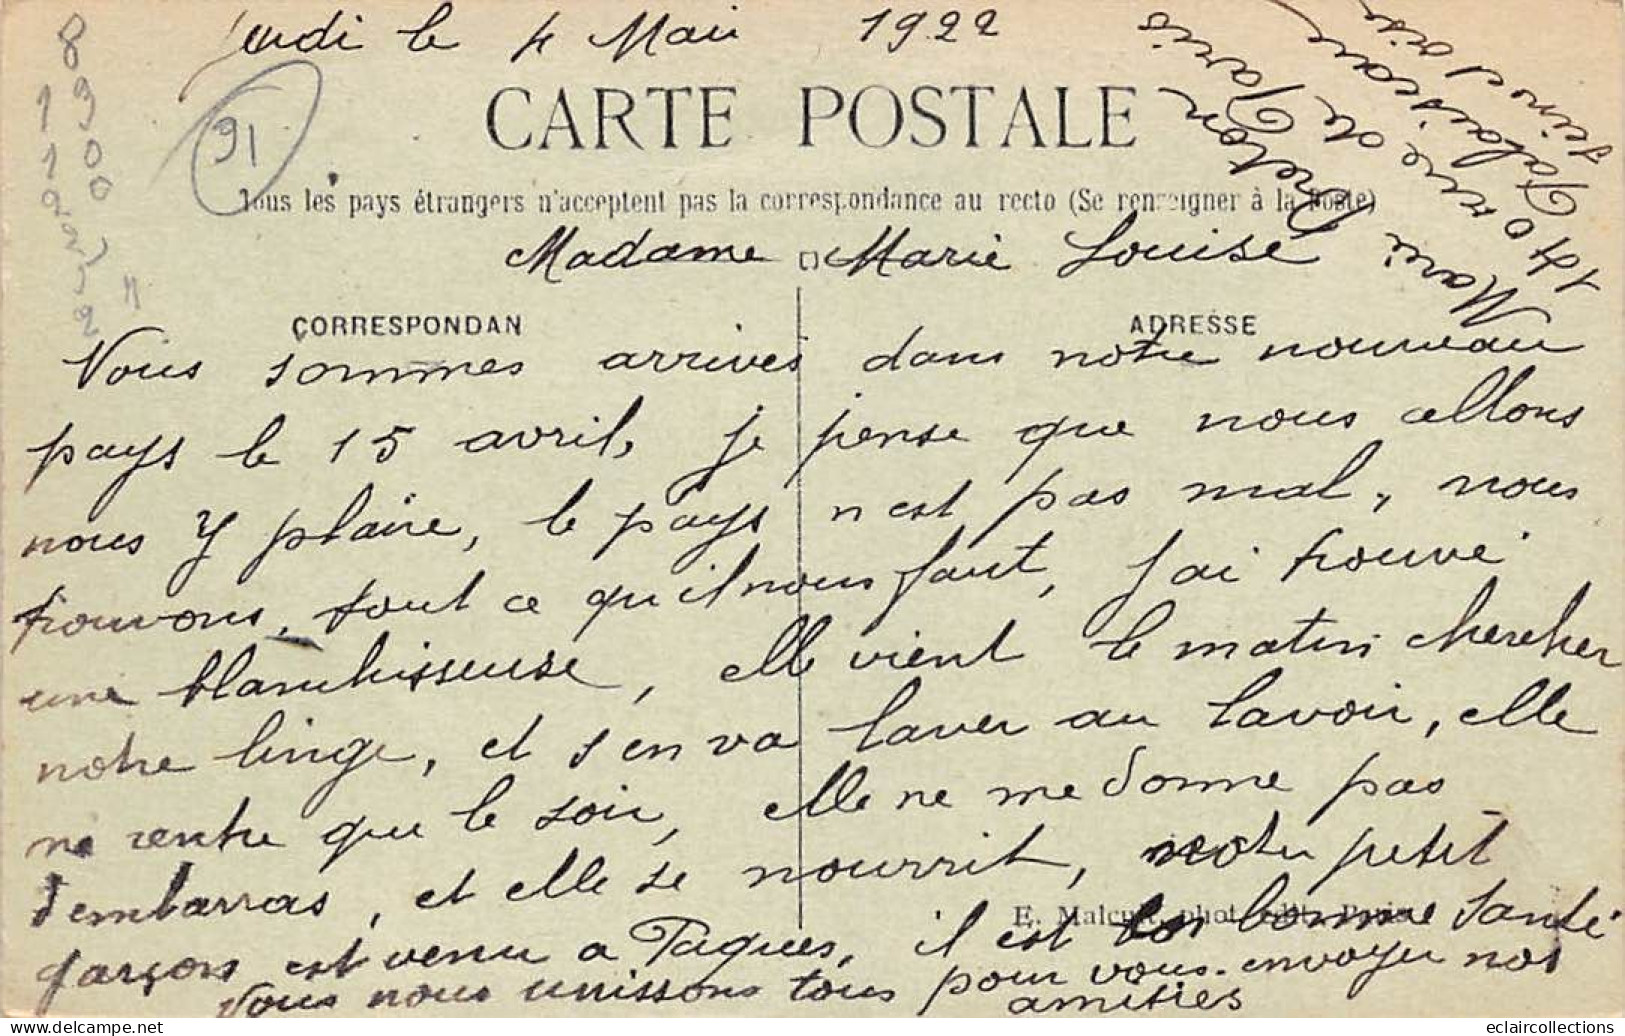 Jeudi le 4 Mai 1922
CARTE POSTALE
Tous les pays étrangers n'acceptent pas la correspondance au recto (Se renseigner à la Poste)
Madame Marie Louise
CORRESPONDAN
ADRESSE
Nous sommes arrivés dans notre nouveau
pays le 15 avril, je pense que nous allons
nous y plaire, le pays n'est pas mal, nous
trouvons, tout ce qu'il nous faut, j'ai trouvé
une blanchisseuse, elle vient le matin chercher
notre linge, et s'en va laver au lavoir, elle
ne rentre que le soir, elle ne me donne pas
d'embarras, et elle se nourrit, notre petit
garçons est venu a Paques, il est bonne santé
Nous nous unissons tous pour vous envoyer nos
amitiés
E. Malcuit, phot. édit. Paris
Marie Breton
140 rue de Paris
Palaiseau
Seine et oise
91
8300
112252
"
eclaircollections